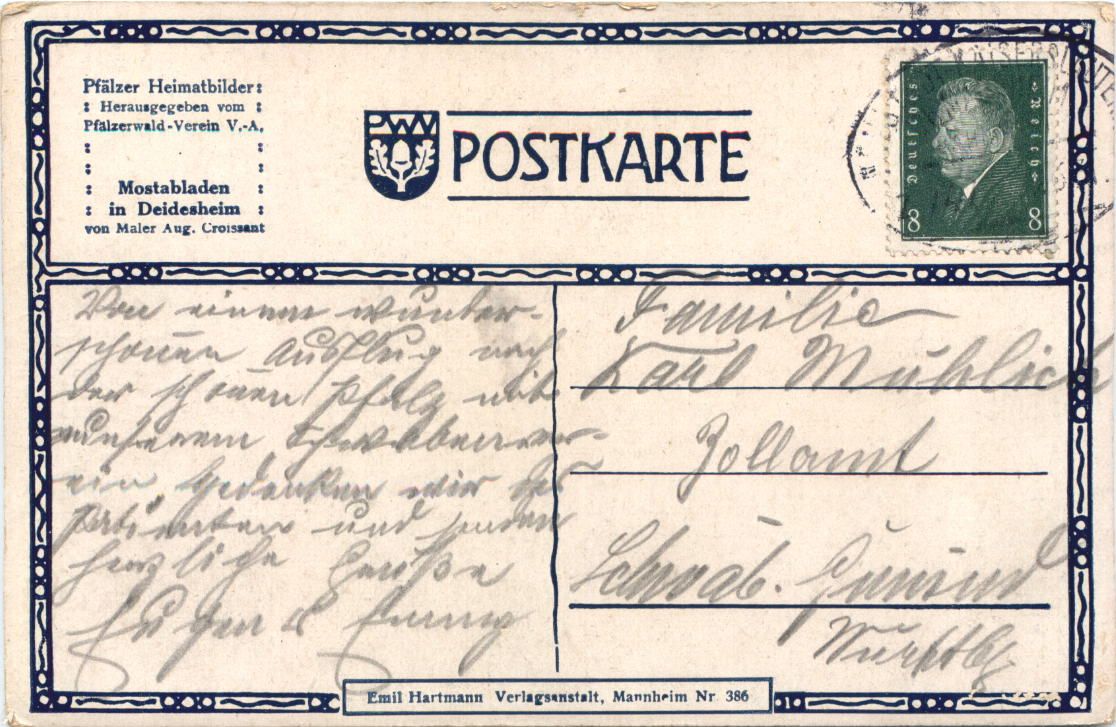 Pfälzer Heimatbilder:
: Herausgegeben vom :
Pfälzerwald-Verein V.-A.
Mostabladen
in Deidesheim
von Maler Aug. Croissant
PWV
POSTKARTE
Deutsches Reich
8 8
Von einem wunder-
schönen Ausflug nach
der schönen Pfalz mit
unserem Schwabenver-
ein, gedenken wir des
Patienten und senden
herzliche Grüße
Eugen & Emmy
Familie
Karl Mühlich
Zollamt
Schwäb. Gmünd
Württbg
Emil Hartmann Verlagsanstalt, Mannheim Nr. 386